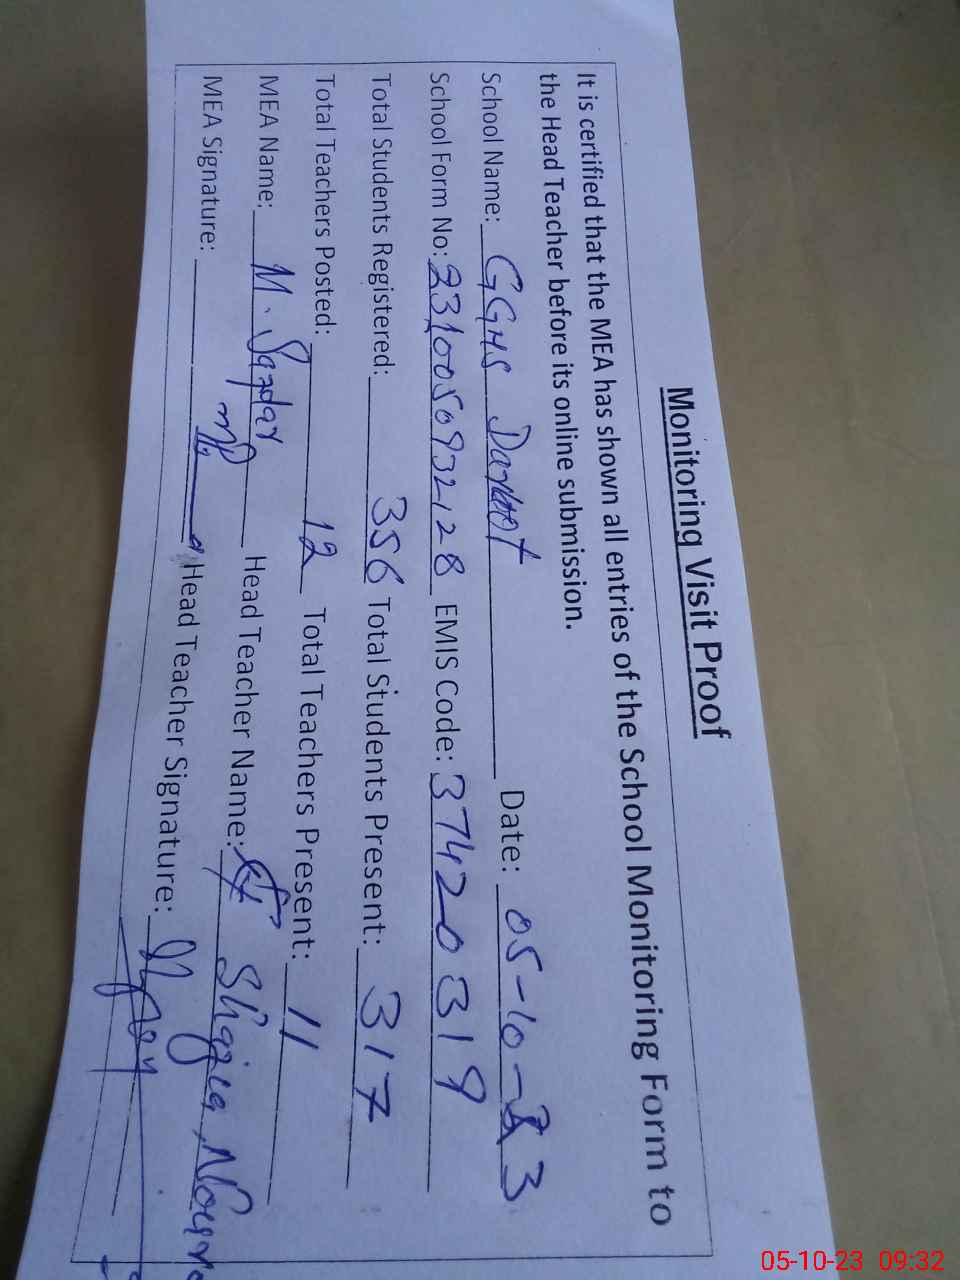 Monitoring Visit Proof
It is certified that the MEA has shown all entries of the School Monitoring Form to
the Head Teacher before its online submission.
School Name: GGHS Date: 05-10-23
School Form No: EMIS Code: 37420319
Total Students Registered: 356 Total Students Present: 317
Total Teachers Posted: 12 Total Teachers Present: 11
MEA Name: M. Safdar Head Teacher Name: Shazia
MEA Signature: Head Teacher Signature:
05-10-23 09:32